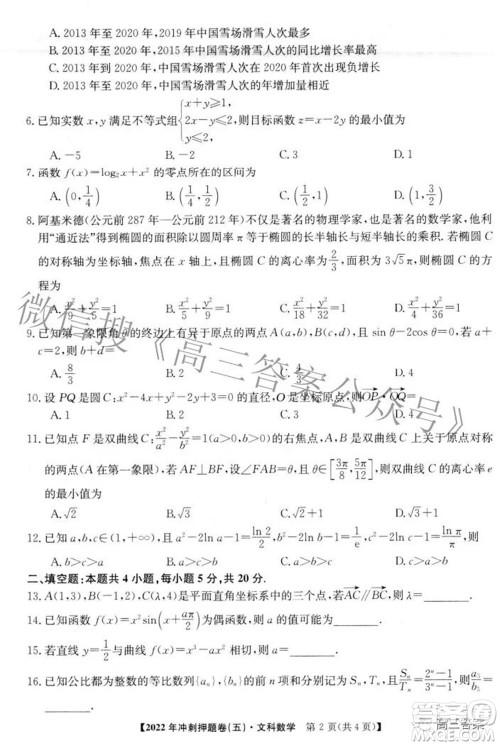 A. 2013 年至 2020 年,2019 年中国雪场滑雪人次最多
B. 2013 年至 2020 年,2015 年中国雪场滑雪人次的同比增长率最高
C. 2013 年至 2020 年,中国雪场滑雪人次在 2020 年首次出现负增长
D. 2013 年至 2020 年,中国雪场滑雪人次的年增加量相近
6. 已知实数 x,y 满足不等式组{x+y⩾1, 2x-y⩽2, y⩽2, 则目标函数 z=x-2y 的最小值为
A. -5 B. -2 C. 3 D. 1
7. 函数 f(x)=log₂x+x² 的零点所在的区间为
A. (0, 1/4) B. (1/4, 1/2) C. (1/2, 1) D. (1, 3/2)
8. 阿基米德(公元前 287 年—公元前 212 年)不仅是著名的物理学家,也是著名的数学家,他利
用“逼近法”得到椭圆的面积除以圆周率 π 等于椭圆的长半轴长与短半轴长的乘积. 若椭圆 C
的对称轴为坐标轴,焦点在 y 轴上,且椭圆 C 的离心率为 2/3,面积为 3√5π,则椭圆 C 的标准方程为
A. x²/9+y²/5=1 B. x²/5+y²/9=1 C. x²/4+y²/9=1 D. x²/16+y²/9=1
9. 已知第一象限角 θ 的终边上有异于原点的两点 A(a,b),B(c,d),且 sin θ-2cos θ=0,若 a
+c=2,则 b+d 的值为
A. 8/3 B. 2 C. 3 D. 4
10. 设 PQ 是圆 C:x²-4x+y²-2y=0 的直径,O 是坐标原点,则OP·OQ=
A. 0 B. 1 C. 2 D. 4
11. 已知点 F 是双曲线 C: x²/a²-y²/b²=1(a>0,b>0)的右焦点,A,B 是双曲线 C 上关于原点对称
的两点(A 在第一象限),若 AF⊥BF,设∠BAF=θ,且 θ∈[3π/8, 5π/12],则双曲线 C 的离心率 e
的最小值为
A. √2 B. √3 C. 2 D. √5
12. 已知 a,b,c∈(1,+∞),且 a²-2ln a-1=ln 2/2,b²-2ln b-1=1/e,c²-2ln c-1=ln π/π,则
A. b>c>a B. b>a>c C. a>b>c D. c>a>b
二、填空题:本题共 4 小题,每小题 5 分,共 20 分.
13. A(1,3),B(-1,2),C(λ,4)是平面直角坐标系中的三个点,若AC∥BC,则 λ=________.
14. 已知函数 f(x)=sin(x+aπ/2)为偶函数,则 a 的值可能为________.
15. 若直线 y=1/2 与曲线 f(x)=x³-ax² 相切,则 a=________.
16. 已知公比都不为 1 的等比数列{aₙ},{bₙ}的前 n 项和分别为 Sₙ,Tₙ,且满足 Sₙ/Tₙ=(2ⁿ-1)/(3ⁿ-1),则 aₙ/bₙ=
________.
【2022 年冲刺押题卷(五)·文科数学 第 2 页(共 4 页)】
微信搜《高三答案公众号》
高三答案